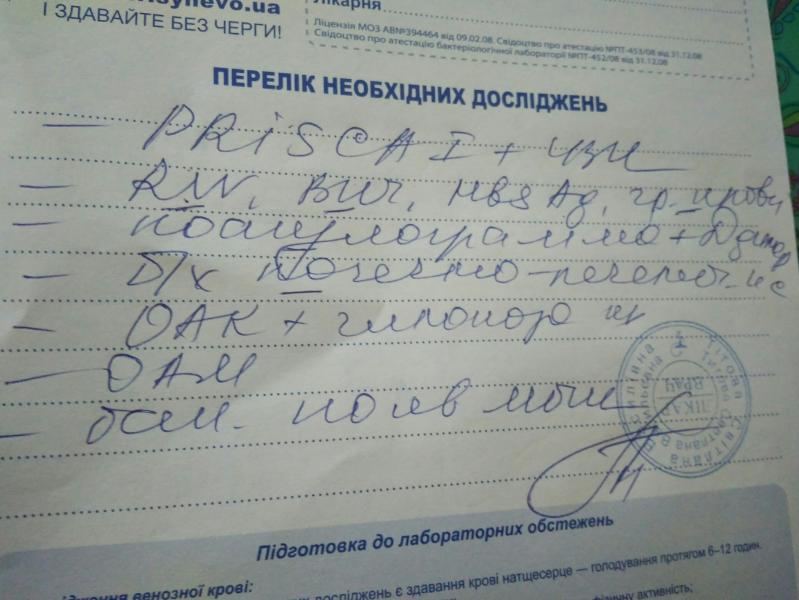 synevo.ua
І ЗДАВАЙТЕ БЕЗ ЧЕРГИ!
Лікарня
Ліцензія МОЗ АВ№394464 від 09.02.08. Свідоцтво про атестацію №ПТ-453/08 від 31.12.08
Свідоцтво про атестацію бактеріологічної лабораторії №ПТ-452/08 від 31.12.08
ПЕРЕЛІК НЕОБХІДНИХ ДОСЛІДЖЕНЬ
— PRISCA I + УЗИ
— RW, ВИЧ, HBsAg, гр. крови
— коагулограмма + Д димер
— б/х почечно-печеноч.
— ОАК + глюкоза кр
— ОАМ
— бак. посев мочи
Тітова Світлана
ЛІКАР
ВРАЧ
Підготовка до лабораторних обстежень
дження венозної крові:
досліджень є здавання крові натщесерце — голодування протягом 6–12 годин.
фізичну активність;